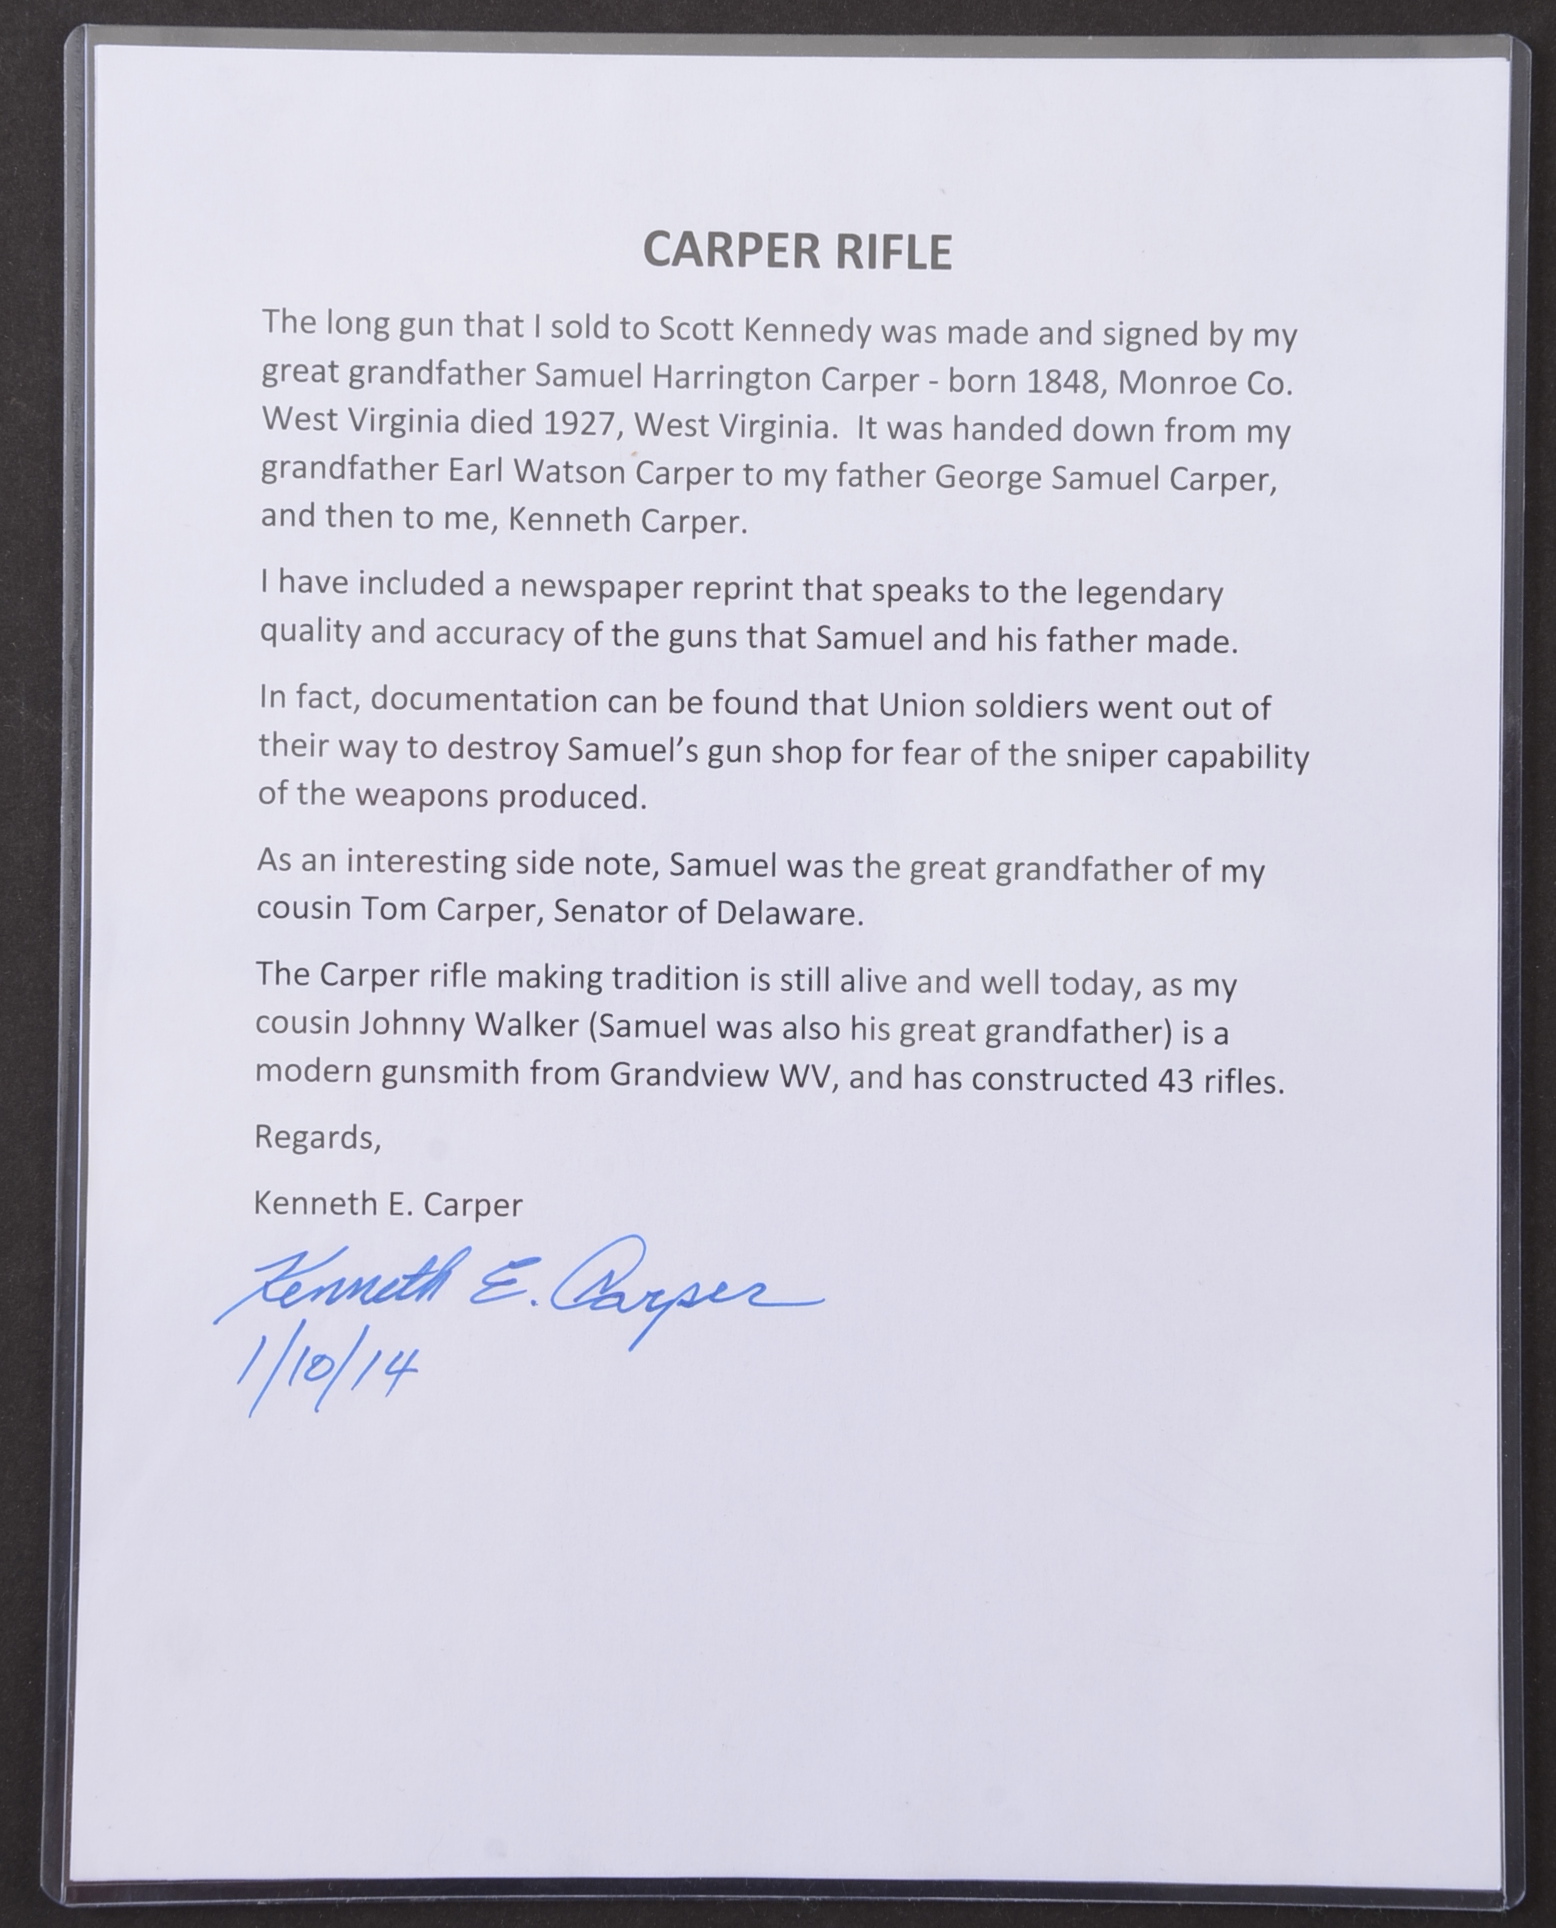 CARPER RIFLE
The long gun that I sold to Scott Kennedy was made and signed by my
great grandfather Samuel Harrington Carper - born 1848, Monroe Co.
West Virginia died 1927, West Virginia.  It was handed down from my
grandfather Earl Watson Carper to my father George Samuel Carper,
and then to me, Kenneth Carper.
I have included a newspaper reprint that speaks to the legendary
quality and accuracy of the guns that Samuel and his father made.
In fact, documentation can be found that Union soldiers went out of
their way to destroy Samuel's gun shop for fear of the sniper capability
of the weapons produced.
As an interesting side note, Samuel was the great grandfather of my
cousin Tom Carper, Senator of Delaware.
The Carper rifle making tradition is still alive and well today, as my
cousin Johnny Walker (Samuel was also his great grandfather) is a
modern gunsmith from Grandview WV, and has constructed 43 rifles.
Regards,
Kenneth E. Carper
Kenneth E. Carper
1/10/14